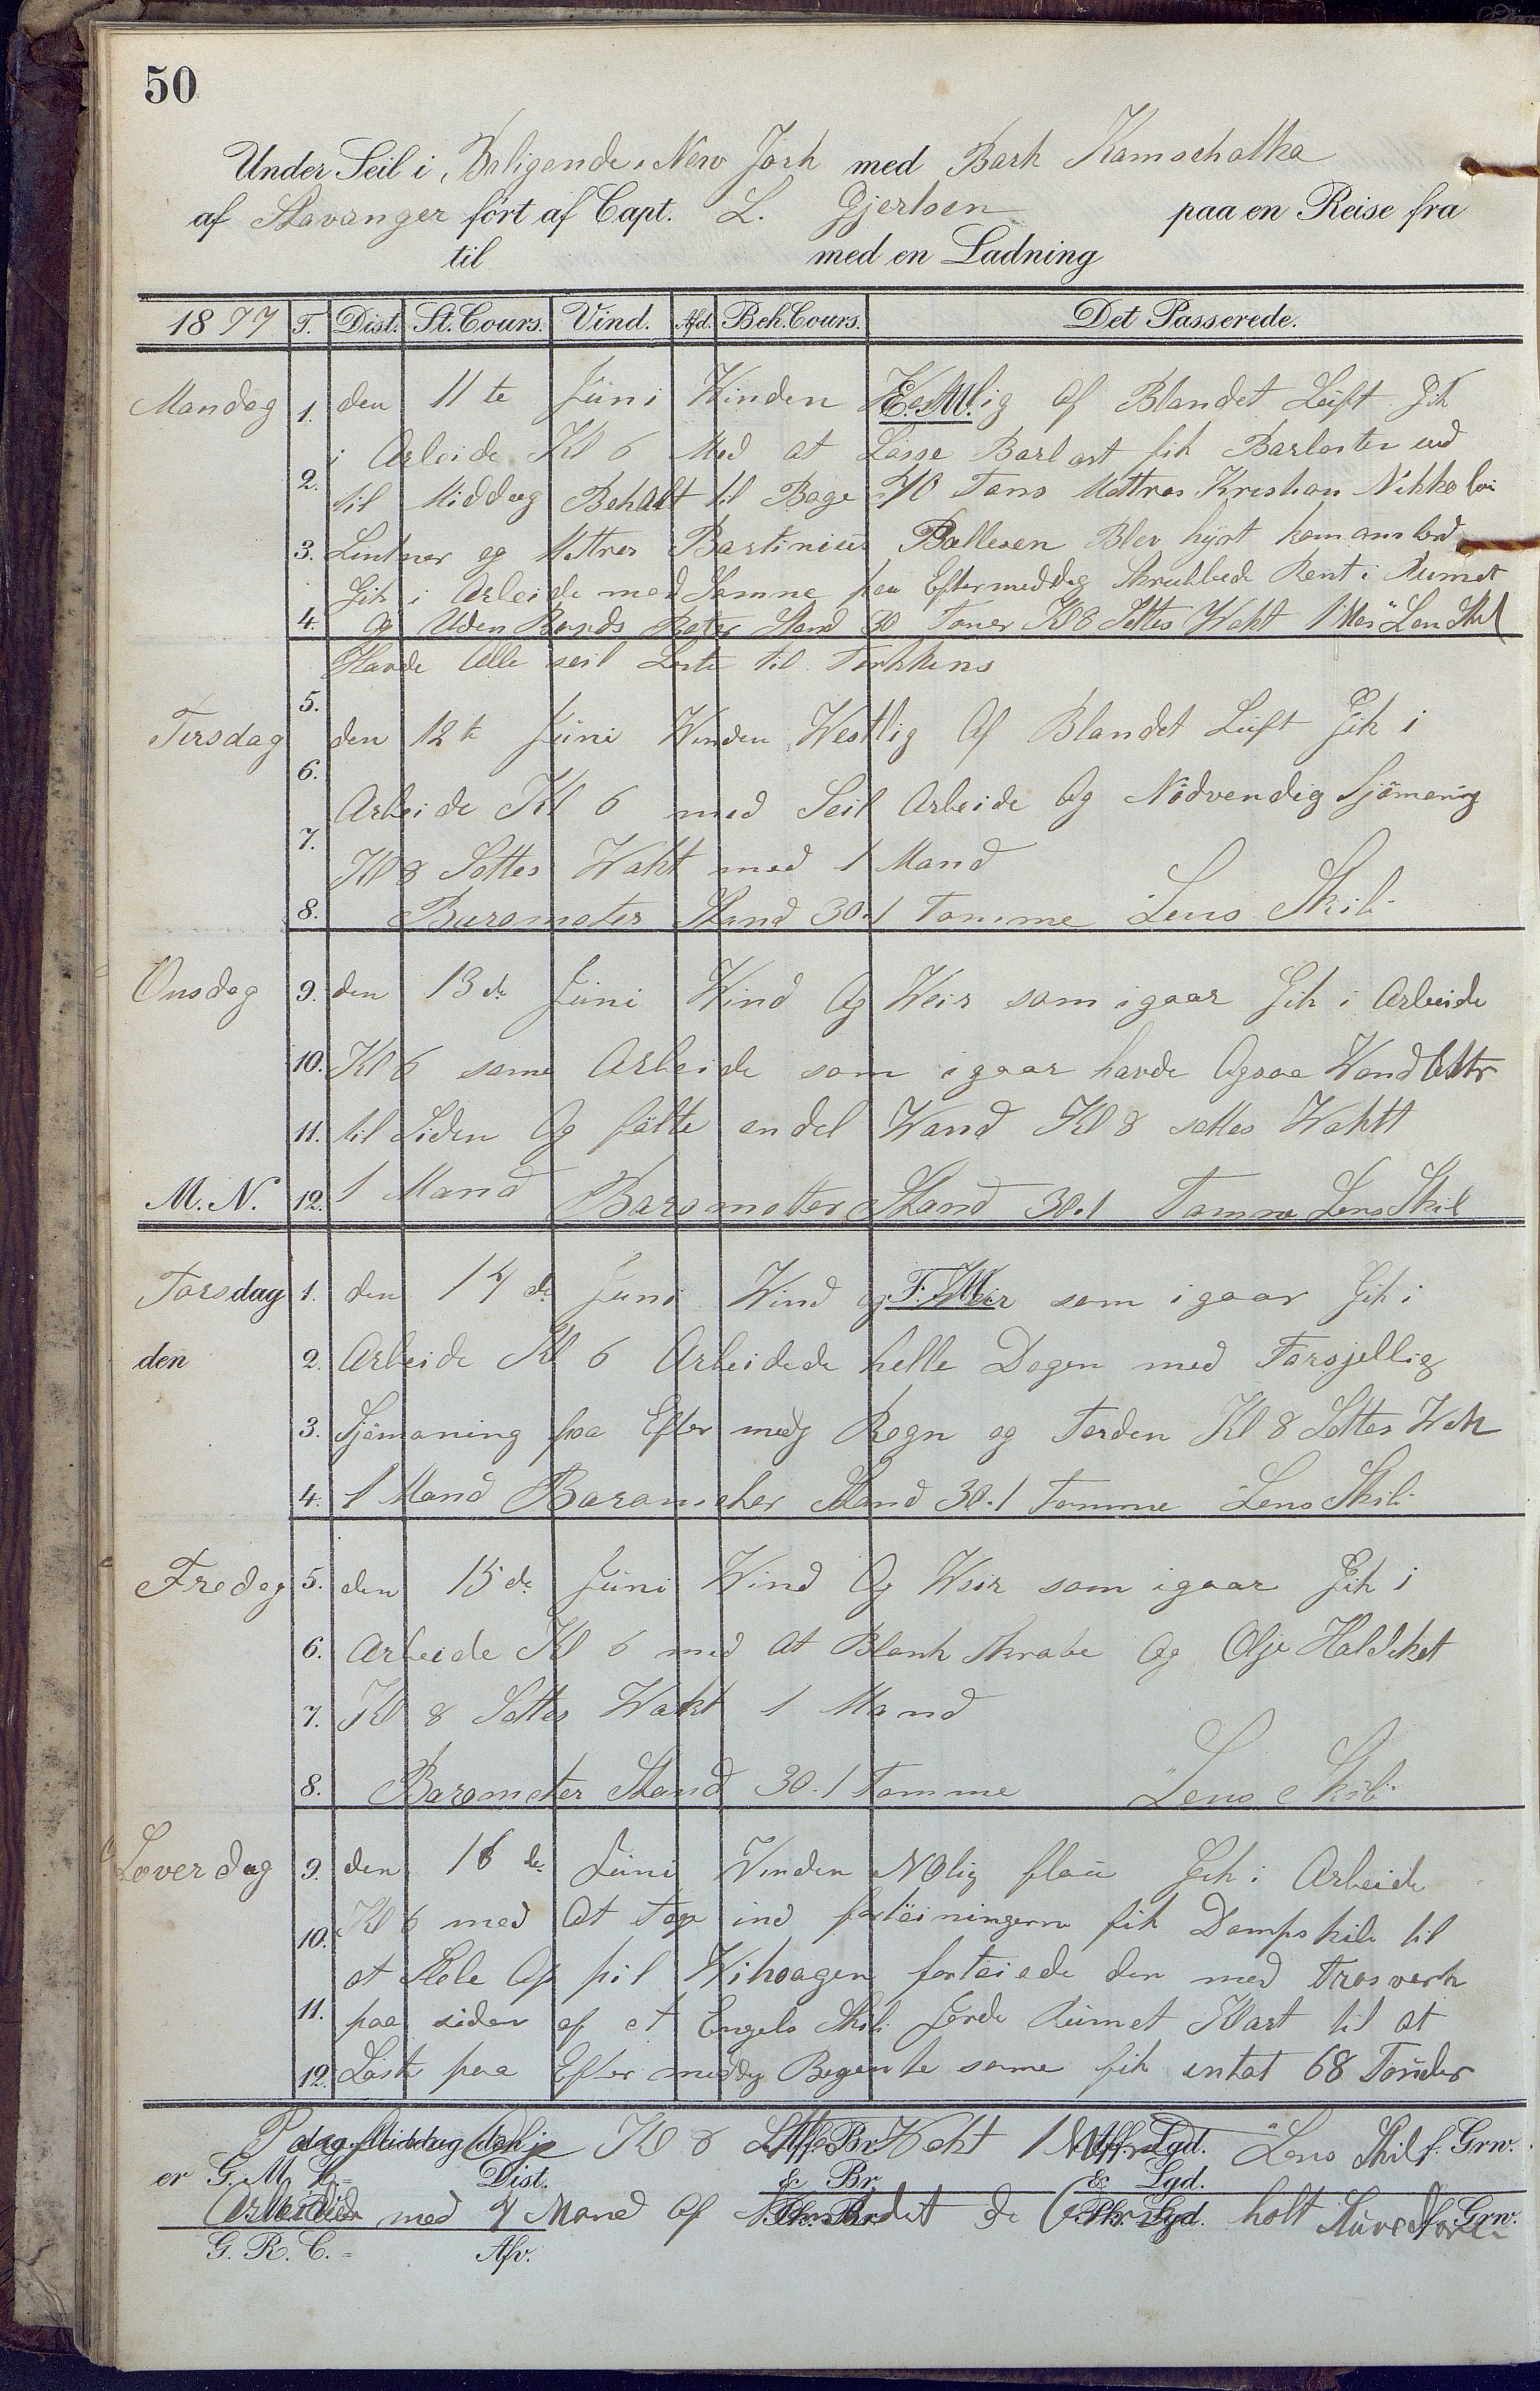 50
Under Seil i, Beligende i New York med Bark Kamschatka
af Stavanger fört af Capt. L. Gjertsen paa en Reise fra
til med en Ladning
1877 T. Dist. St. Cours. Vind. Afd. Beh. Cours. Det Passerede.
Mandag 1. den 11te Jüni Winden Westlig Af Blandet Lüft Gik
E. M.
2. i Arbeide Kl 6 Med at Lösse Barlast fik Barlasten ud
til Middag Beholdt til Bage Tons Mattros Kristian Nikkolai
3. og Mattros Bertinius Blev hyrt kom om bord
Gik i Arbeide med Samme paa Eftermeddag Skrubbede Rent i Rumet
4. Og Uden Bords Stand 30 Kl 8 Settes Wakt 1 Man Lens Skib
Havde Alle seil
5.
Tirsdag den 12te Jüni Winden Westlig Af Blandet Lüft Gik i
6.
Arbeide Kl 6 med Seil Arbeide Og Nödvendig Sjömaning
7.
Kl 8 Settes Wakt med 1 Mand
8. Barometer Stand 30.1 Tomme Lens Skib
Onsdag 9. den 13de Jüni Wind Og Weir som igaar Gik i Arbeide
10. Kl 6 same Arbeide som igaar havde Ogsaa Wand
11. til Siden Og fölte en del Wand Kl 8 settes Wakt
M. N. 12. 1 Mand Barometer Stand 30.1 Tomme Lens Skib
Torsdag 1. den 14de Juni Wind og Weir som igaar Gik i
F. M.
den 2. Arbeide Kl 6 Arbeidede helle Dagen med Forsjellig
3. Sjömaning paa Efter medg Regn og Torden Kl 8 Settes Wakt
4. 1 Mand Barometer Stand 30.1 Tomme Lens Skib
Fredag 5. den 15de Jüni Wind Og Weir som igaar Gik i
6. Arbeide Kl 6 med At Blank Skrabe Og Olje
7. Kl 8 Settes Wakt 1 Mand
8. Barometer Stand 30.1 Tomme Lens Skib
Löverdag 9. den 16de Jüni Vinden NOlig flaü Gik i Arbeide
10. Kl 6 med At Tage ind fortöiningerne fik Dampskib til
at Slebe Op til Wihoagen fortöiede den med Trosverk
11. paa siden af et Engels Skib Jorde Rümet Klart til at
12. Laste paa Efter meddg Begente same fik intat 68 Tönder
Olje Kl 8 Settes Wakt 1 Lens Skib
dag Middag Aff. Br. Aff. Lgd. f. Grw.
er G. M. C. = Dist. & Br. & Lgd.
Arbeider med 4 Mand Af holt
Ph. Br. Ph. Lgd. f. Grw.
G. R. C. = Afv.